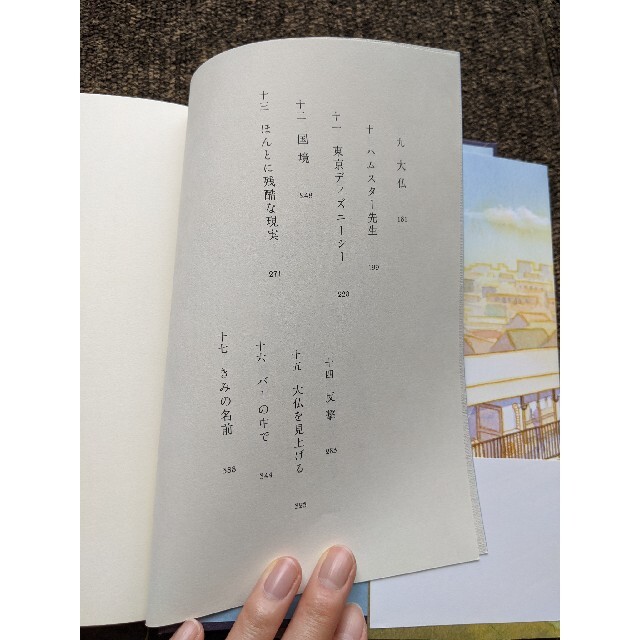 九 大仏 181
十 ハムスター先生 199
十一 東京デズニーシー 223
十二 国境 248
十三 ほんとに残酷な現実 271
十四 反撃
十五 大仏を見上げる
十六 バーの中で
十七 きみの名前